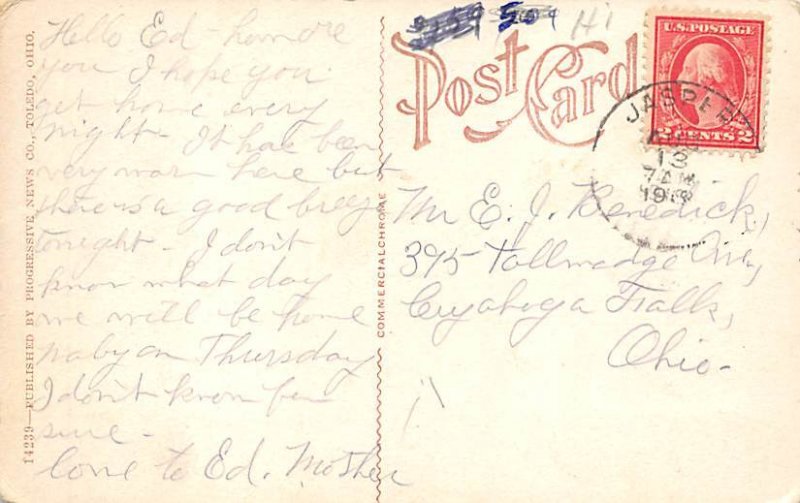 Hello Ed - how are
you I hope you
get home every
night - It has been
very warm here but
there is a good breeze
tonight - I don't
know what day
we will be home
maby on Thursday
I don't know for
sure -
love to Ed. Mother
14239—PUBLISHED BY PROGRESSIVE NEWS CO., TOLEDO, OHIO.
COMMERCIALCHROME
509
Hi
Post Card
U.S. POSTAGE
2 CENTS 2
JASPER
13
7 AM
Mr E. J. Benedick,
395 Tallmadge Ave,
Cuyahoga Falls,
Ohio-